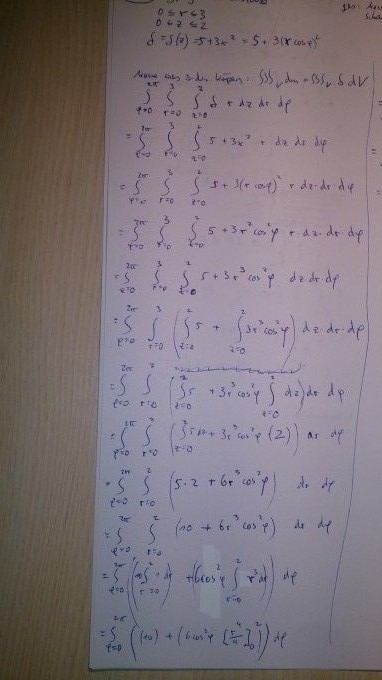 0 ≤ r ≤ 3
0 ≤ z ≤ 2
δ = δ(z) = 5+3x² = 5+3(r cosφ)²
Masse des Körpers: ∫∫∫_V dm = ∫∫∫_V δ dV
∫_{φ=0}^{2π} ∫_{r=0}^{3} ∫_{z=0}^{2} δ r dz dr dφ
= ∫_{φ=0}^{2π} ∫_{r=0}^{3} ∫_{z=0}^{2} 5 + 3x² r dz dr dφ
= ∫_{φ=0}^{2π} ∫_{r=0}^{3} ∫_{z=0}^{2} 5 + 3(r cosφ)² r dz·dr·dφ
= ∫_{φ=0}^{2π} ∫_{r=0}^{3} ∫_{z=0}^{2} 5 + 3r² cos²φ r·dz·dr·dφ
= ∫_{φ=0}^{2π} ∫_{r=0}^{3} ∫_{z=0}^{2} 5 + 3r³ cos²φ dz dr dφ
= ∫_{φ=0}^{2π} ∫_{r=0}^{3} (∫_{z=0}^{2} 5 + ∫_{z=0}^{2} 3r³ cos²φ) dz·dr·dφ
= ∫_{φ=0}^{2π} ∫_{r=0}^{2} (∫_{z=0}^{2} 5 + 3r³ cos²φ ∫_{z=0}^{2} dz) dr dφ
= ∫_{φ=0}^{2π} ∫_{r=0}^{2} (∫_{z=0}^{2} 5 dz + 3r³ cos²φ (2)) dr dφ
= ∫_{φ=0}^{2π} ∫_{r=0}^{2} (5·2 + 6r³ cos²φ) dr dφ
= ∫_{φ=0}^{2π} ∫_{r=0}^{2} (10 + 6r³ cos²φ) dr dφ
= ∫_{φ=0}^{2π} ((10 ∫_{r=0}^{2} 1 dr) + (6cos²φ ∫_{r=0}^{2} r³ dr)) dφ
= ∫_{φ=0}^{2π} ((10) + (6cos²φ [r⁴/4]_0^2)) dφ